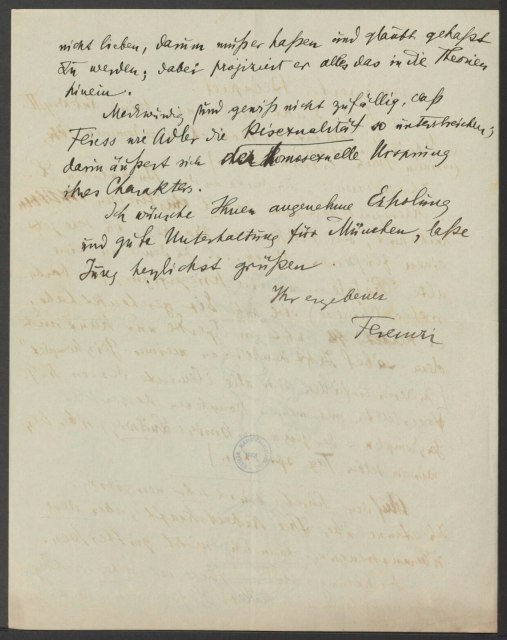 nicht lieben, darum muß er haßen und glaubt gehaßt
zu werden; dabei projiziert er alles das in die Theorien
hinein.
Merkwürdig und gewiß nicht zufällig, daß
Fliess wie Adler die Bisexualität so unterstreichen;
darin äußert sich der homosexuelle Ursprung
ihres Charakters.
Ich wünsche Ihnen angenehme Erholung
und gute Unterhaltung für München, laße
Jung herzlichst grüßen
Ihr ergebener
Ferenczi